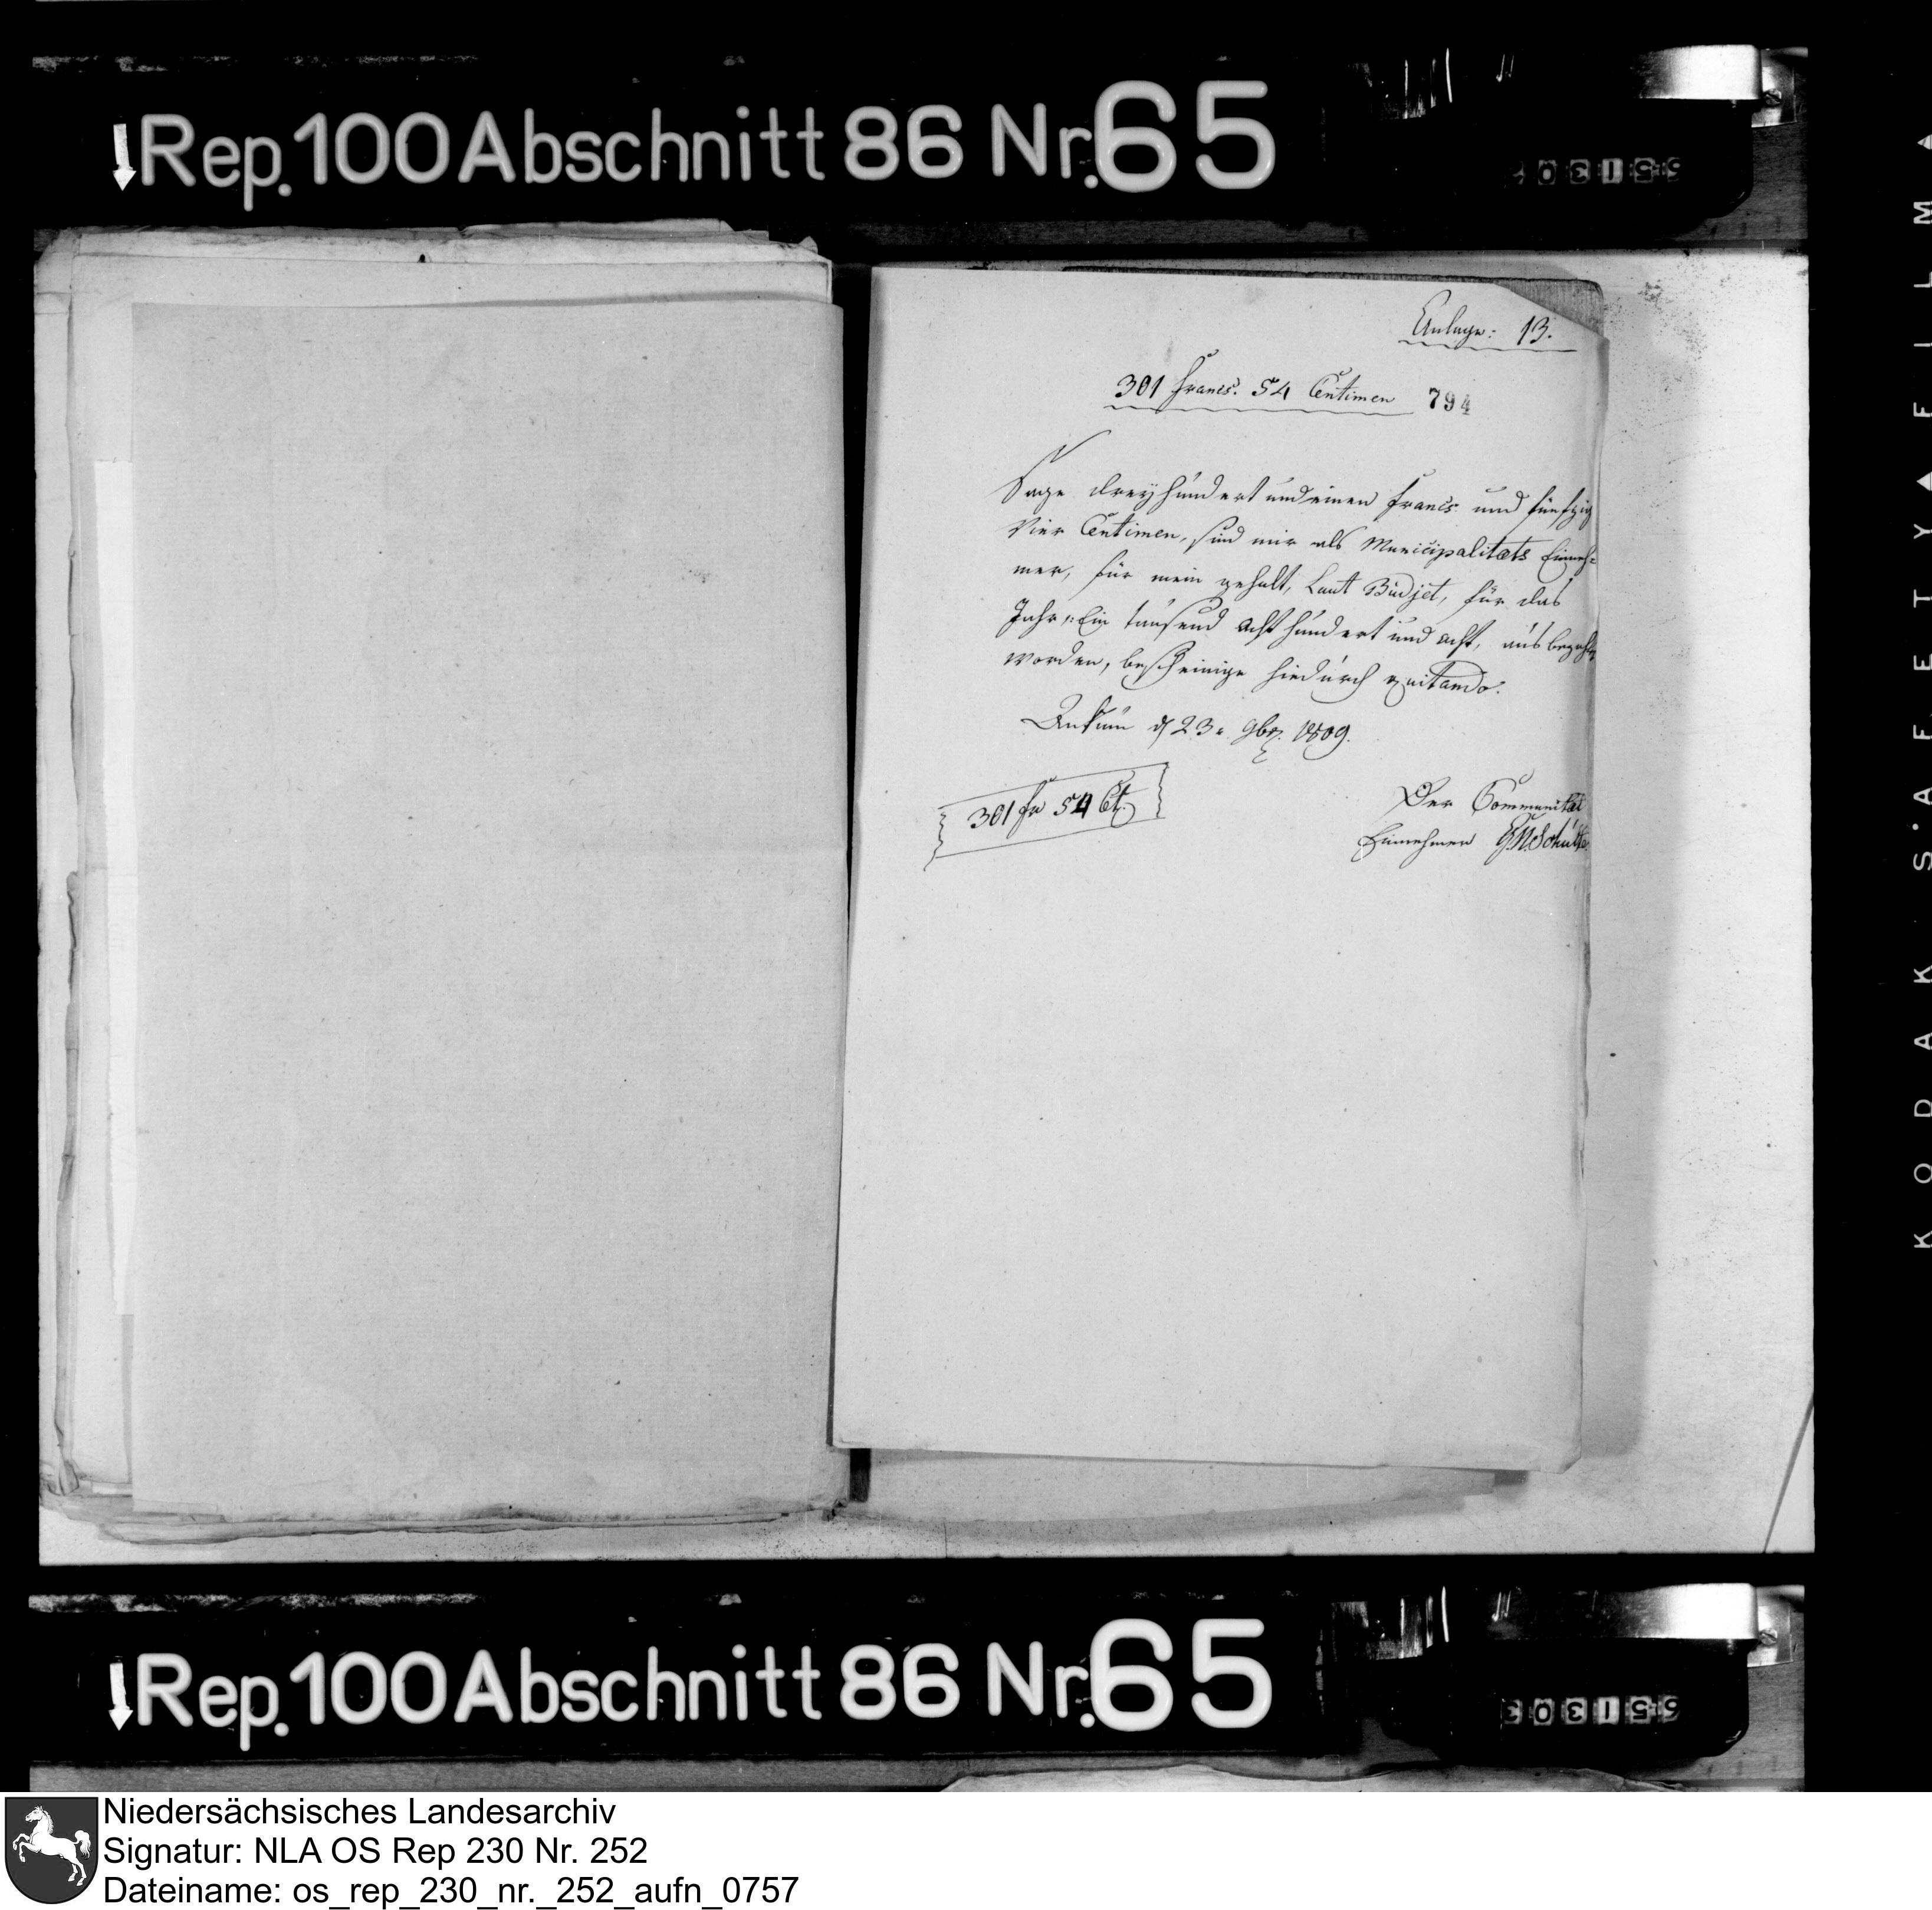 Rep. 100 Abschnitt 86 Nr. 65
Anlage: 13.
301 francs. 54 Centimen 794
Sage dreÿhundert und einen francs und fünfzig
Vier Centimen, sind mir als Municipalitæts Einneh=
mer, für mein gehalt, Laut Budjet, für das
Jahr, Ein tausend acht hundert und acht, aus bezahlt
worden, bescheinige hiedurch quitando.
Ankum d 23n 9br. 1809.
301 fr 54 Ct.
Der Communitæt
Einnehmer Schulte
KODAK SAFETY FILM
Rep. 100 Abschnitt 86 Nr. 65
Niedersächsisches Landesarchiv
Signatur: NLA OS Rep 230 Nr. 252
Dateiname: os_rep_230_nr._252_aufn_0757